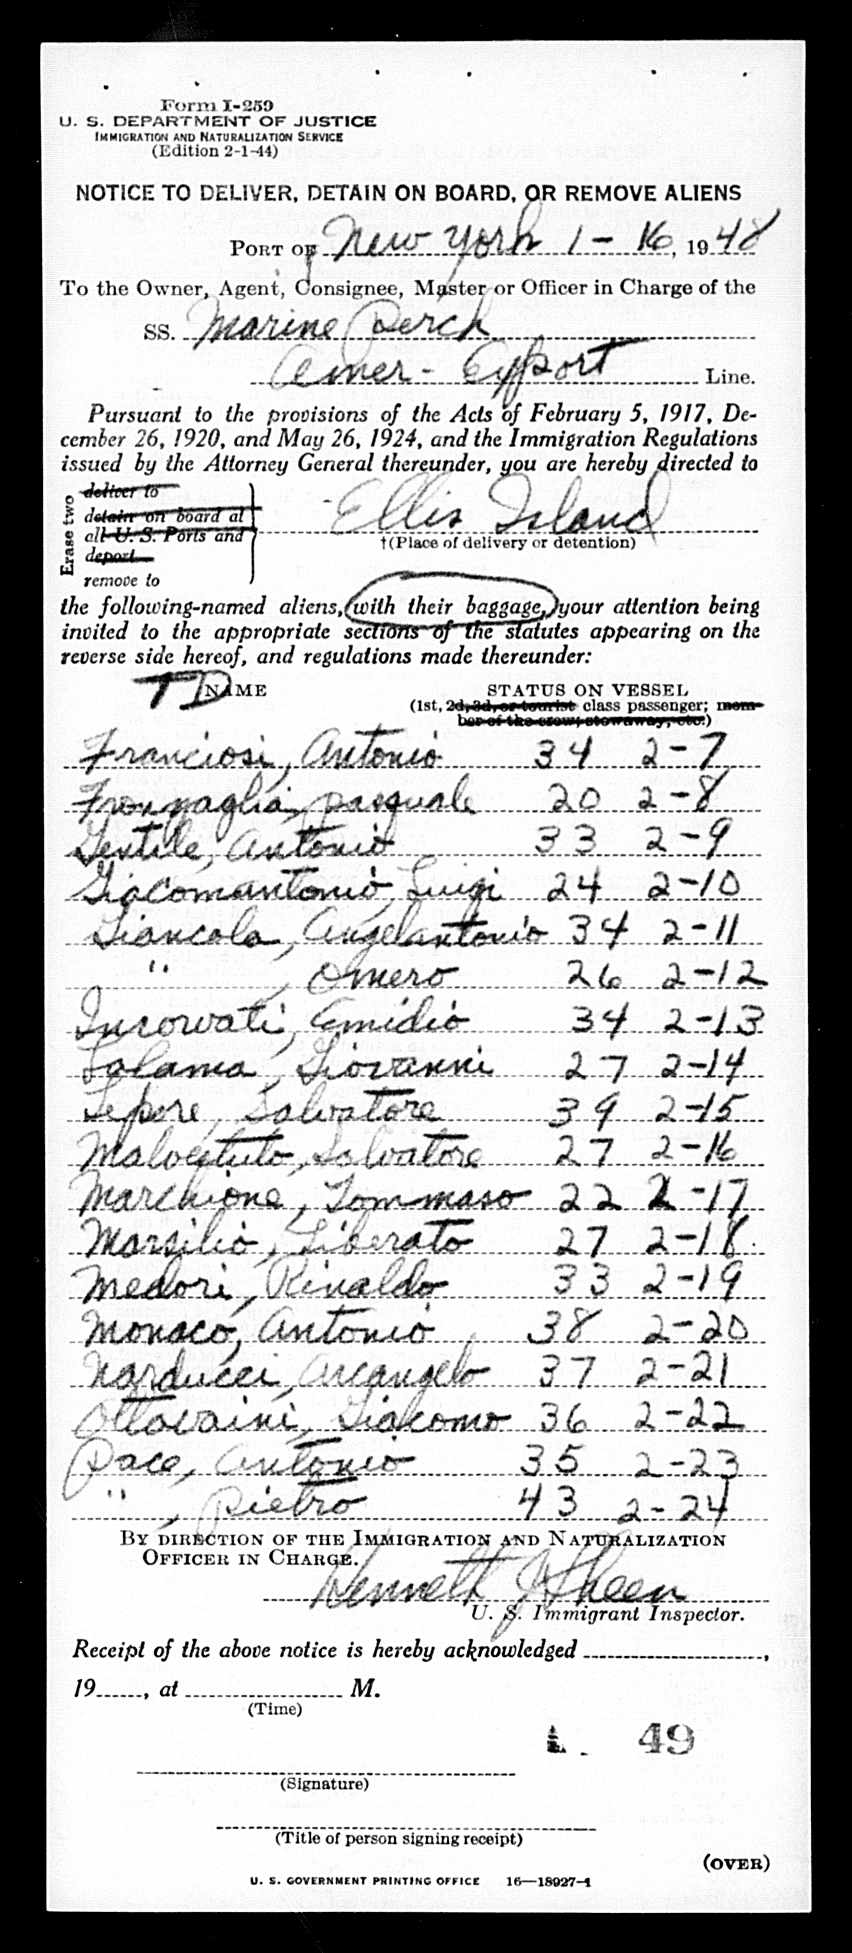 Form I-259
U. S. DEPARTMENT OF JUSTICE
IMMIGRATION AND NATURALIZATION SERVICE
(Edition 2-1-44)
NOTICE TO DELIVER, DETAIN ON BOARD, OR REMOVE ALIENS
PORT OF New York 1-16, 1948
To the Owner, Agent, Consignee, Master or Officer in Charge of the
SS. Marine Perch
Amer- Export Line.
Pursuant to the provisions of the Acts of February 5, 1917, De-
cember 26, 1920, and May 26, 1924, and the Immigration Regulations
issued by the Attorney General thereunder, you are hereby directed to
Erase two
deliver to
detain on board at
all U. S. Ports and
deport
remove to
Ellis Island
†(Place of delivery or detention)
the following-named aliens, (with their baggage,) your attention being
invited to the appropriate sections of the statutes appearing on the
reverse side hereof, and regulations made thereunder:
TD NAME STATUS ON VESSEL
(1st, 2d, 3d, or tourist class passenger; mem-
ber of the crew; stowaway, etc.)
Franciosi, Antonio 34 2-7
Pasquale 20 2-8
Gentile, Antonio 33 2-9
Giacomantonio, Luigi 24 2-10
Giancola, Angelantonio 34 2-11
" , Omero 26 2-12
Incorvati, Emidio 34 2-13
Lalama, Giovanni 27 2-14
Lepore, Salvatore 39 2-15
Malvestuto, Salvatore 27 2-16
Marchione, Tommaso 22 2-17
Marsilio, Liberato 27 2-18
Medori, Rinaldo 33 2-19
Monaco, Antonio 38 2-20
Narducci, Arcangelo 37 2-21
Ottavaini, Giacomo 36 2-22
Pace, Antonio 35 2-23
" , Pietro 43 2-24
BY DIRECTION OF THE IMMIGRATION AND NATURALIZATION
OFFICER IN CHARGE.
Kenneth J Sheen
U. S. Immigrant Inspector.
Receipt of the above notice is hereby acknowledged ,
19 , at M.
(Time)
49
(Signature)
(Title of person signing receipt)
(OVER)
U. S. GOVERNMENT PRINTING OFFICE 16—18927-1